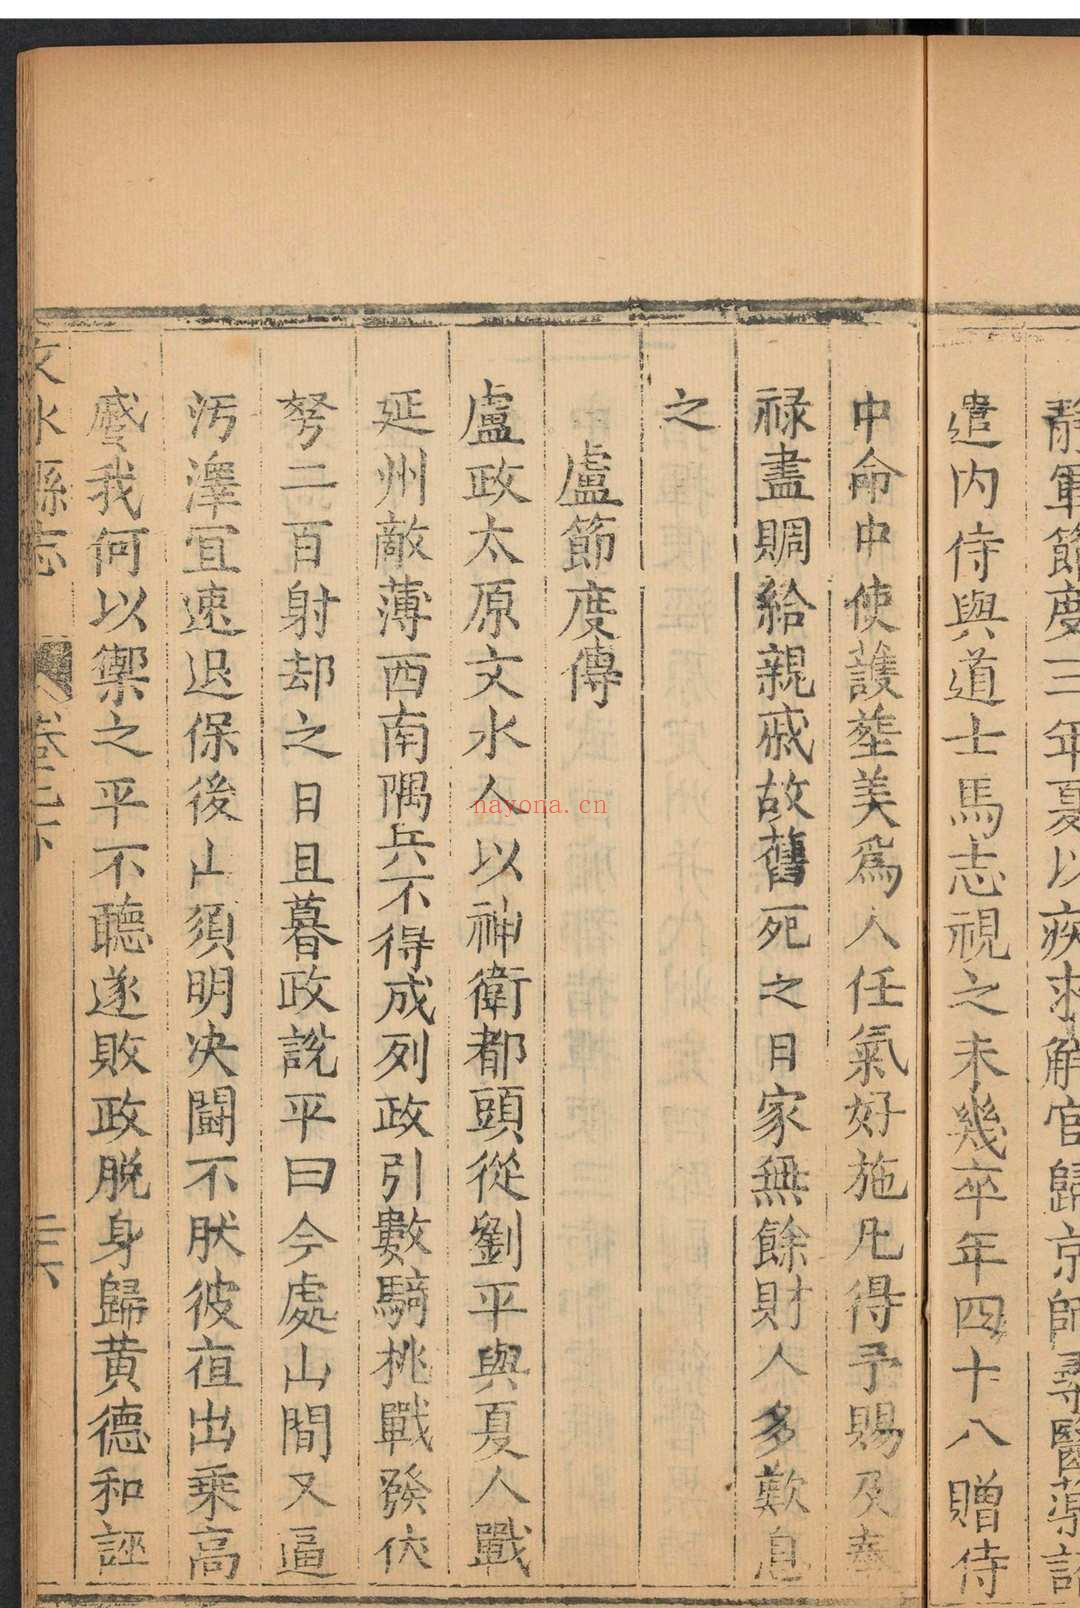 靜軍節度三年夏以疾求解官歸京師尋醫藥詔
遣内侍與道士馬志視之未幾卒年四十八贈侍
中命中使護塟美爲人任氣好施凡得予賜及奉
祿盡賙給親戚故舊死之日家無餘財人多歎息
之
盧節度傳
盧政太原文水人以神衛都頭從劉平與夏人戰
延州敵薄西南隅兵不得成列政引數騎挑戰發伏
弩二百射却之日且暮政說平曰今處山間又逼
汚澤宜速退保後山須明决鬪不肰彼夜出乗高
蹙我何以禦之平不聽遂敗政脱身歸黄德和誣
文水縣志 卷之下 二六
nayona.cn